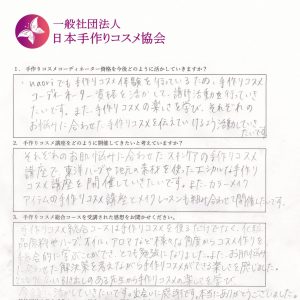 一般社団法人
日本手作りコスメ協会
1. 手作りコスメコーディネーター資格を今後どのように活かしていきますか?
でも手作りコスメ体験を行っているため、手作りコスメ
コーディネーター資格を活かして、講師活動を行っていき
たいです。また、手作りコスメの楽しさを学び、それぞれの
お悩みに合わせた手作りコスメを伝えていけるよう活動していき
たいです
2. 手作りコスメ講座をどのように開催してきたいと考えていますか?
それぞれのお肌の悩みに合わせたスキンケアの手作りコスメ
講座で、東洋ハーブや地元の素材を使ったエシカルな手作り
コスメ講座を開催していきたいです。また、カラーメイク
アイテムの手作りコスメ講座とメイクレッスンも組み合わせて開催したいです。
3. 手作りコスメ総合コースを受講された感想をお聞かせください。
手作りコスメ総合コースは手作りコスメを作るだけでなく、化粧
品原料やハーブ、オイル、アロマなど様々な角度からコスメ作りを
総合的に学ぶことができ、とても勉強になりました。またお肌の悩み
に合わせた解決策を考えながら手作りコスメができる楽しさを感じました。
引き出しのある先生から手作りコスメの楽しさを学び
していきたいです。出会いに感謝です。本当にありがとうございました。